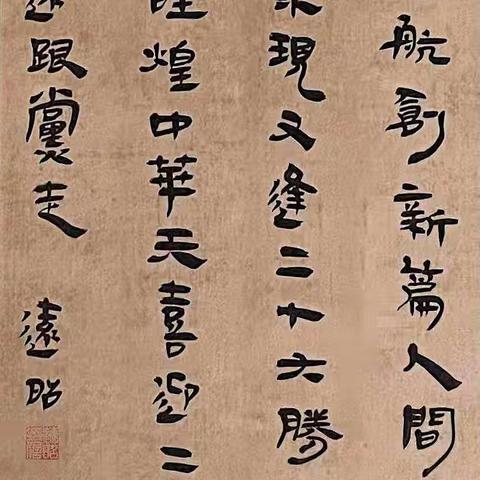 航創新篇人間
現又逢二十大勝
煌中華天喜迎二
跟黨走
遠昭